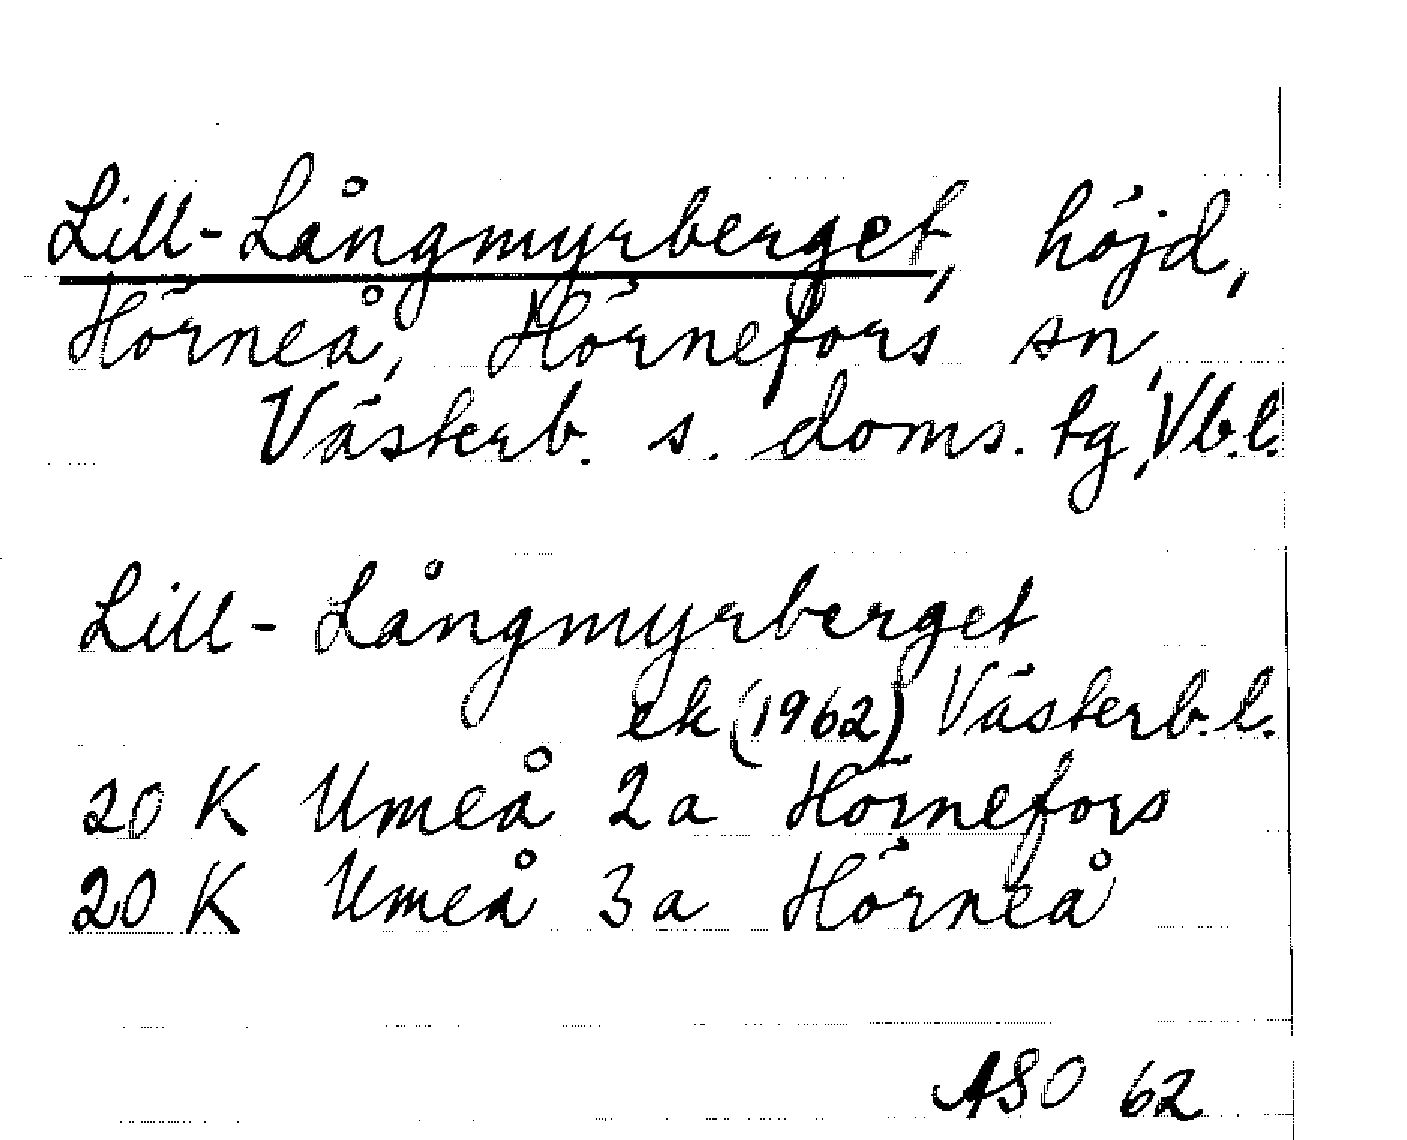 Lill-Långmyrberget, höjd,
Hörneå, Hörnefors sn,
Västerb. s. doms. tg, Vb.l.
Lill-Långmyrberget
ek (1962) Västerb.l.
20 K Umeå 2a Hörnefors
20 K Umeå 3a Hörneå
ASO 62